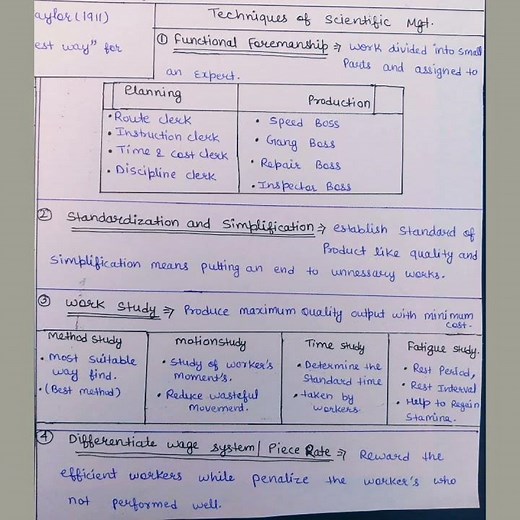 aylor(1911)
est way" for
Techniques of Scientific Mgt.
① Functional Foremanship ⇒ work divided into small
Parts and assigned to
an Expert.
Planning
• Route clerk
• Instruction clerk
• Time & cost clerk
• Discipline clerk
Production
• Speed Boss
• Gang Boss
• Repair Boss
• Inspector Boss
② Standardization and Simplification ⇒ establish Standard of
Product like quality and
Simplification means putting an end to unnessary works.
③ Work Study ⇒ Produce maximum Quality output with minimum
cost.
Method study
• most suitable
way find.
• (Best method)
motionstudy
• Study of worker's
moment's.
• Reduce wasteful
movement.
Time study
• Determine the
Standard time
• taken by
workers
Fatigue study.
• Rest Period,
• Rest Interval
• Help to Regain
Stamina.
④ Differentiate wage system/ Piece Rate ⇒ Reward the
efficient workers while penalize the worker's who
not performed well.